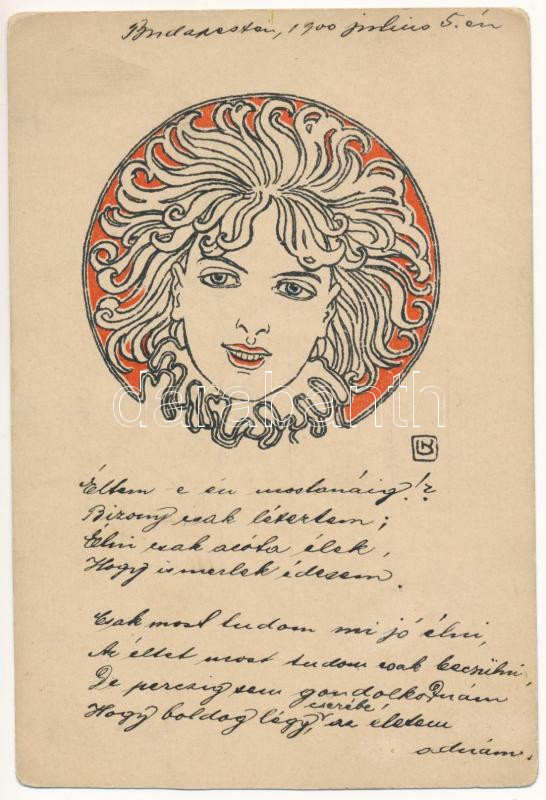 Budapesten, 1900 július 5.-én
darabanth
Éltem e én mostanáig!?
Bizony csak léteztem;
Élni csak azóta élek,
Hogy ismerlek édesem.
Csak most tudom mi jó élni,
Az éltet most tudom csak becsülni,
De perczig sem gondolkodnám
cserébe
Hogy boldog légy, az életem
odnám.